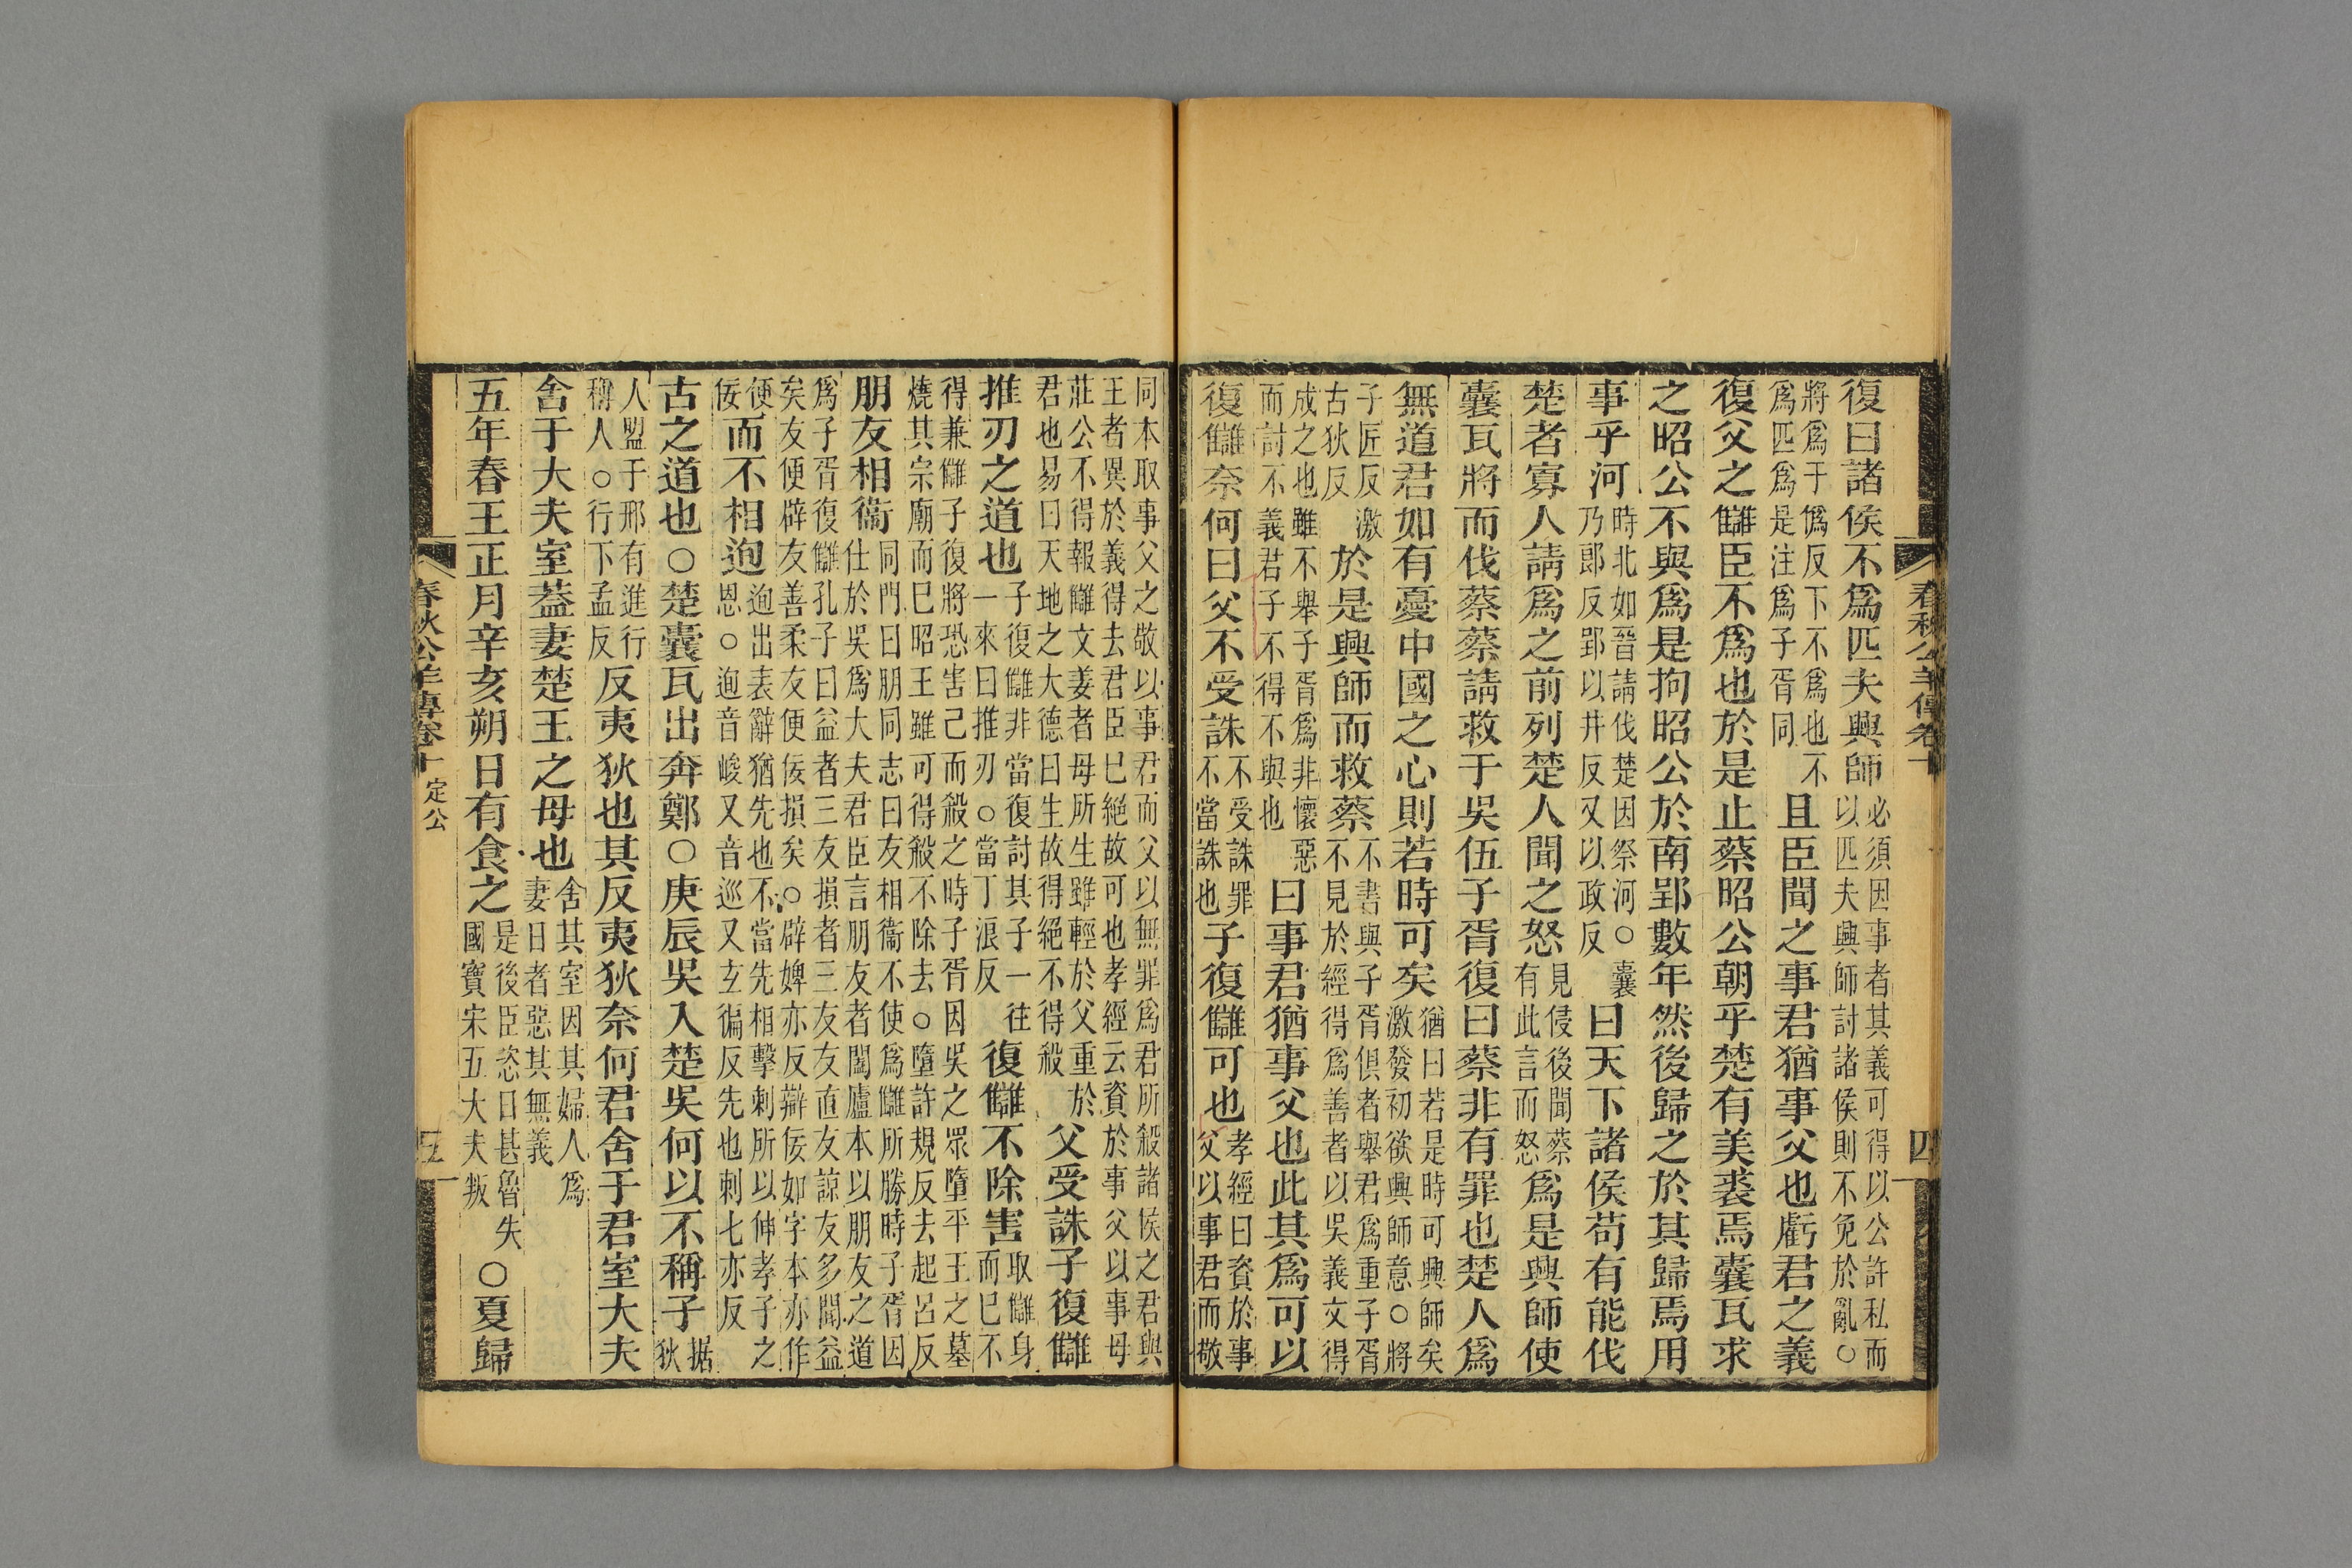 春秋公羊傳卷十 四
復曰諸侯不爲匹夫興師
必須因事者其義可得以公許私而
以匹夫興師討諸侯則不免於亂○
將爲于僞反下不爲也不
爲匹爲是注爲子胥同
且臣聞之事君猶事父也虧君之義
復父之讎臣不爲也於是止蔡昭公朝乎楚有美裘焉囊瓦求
之昭公不與爲是拘昭公於南郢數年然後歸之於其歸焉用
事乎河
時北如晉請伐楚因祭河○囊
乃郎反郢以井反又以政反
曰天下諸侯苟有能伐
楚者寡人請爲之前列楚人聞之怒
見侵後聞蔡
有此言而怒
爲是興師使
囊瓦將而伐蔡蔡請救于吳伍子胥復曰蔡非有罪也楚人爲
無道君如有憂中國之心則若時可矣
猶曰若是時可興師矣
激發初欲興師意○將
子匠反激
古狄反
於是興師而救蔡
不書與子胥俱者舉君爲重子胥
不見於經得爲善者以吳義文得
成之也雖不舉子胥爲非懷惡
而討不義君子不得不與也
曰事君猶事父也此其爲可以
復讎奈何曰父不受誅
不受誅罪
不當誅也
子復讎可也
孝經曰資於事
父以事君而敬
同本取事父之敬以事君而父以無罪爲君所殺諸侯之君與
王者異於義得去君臣已絕故可也孝經云資於事父以事母
莊公不得報讎文姜者母所生雖輕於父重於
君也易曰天地之大德曰生故得絕不得殺
父受誅子復讎
推刃之道也
子復讎非當復討其子一往
一來曰推刃○當丁浪反
復讎不除害
取讎身
而已不
得兼讎子復將恐害己而殺之時子胥因吳之眾墮平王之墓
燒其宗廟而已昭王雖可得殺不除去○墮許規反去起呂反
朋友相衞
同門曰朋同志曰友相衞不使爲讎所勝時子胥因
仕於吳爲大夫君臣言朋友者闔廬本以朋友之道
爲子胥復讎孔子曰益者三友損者三友友直友諒友多聞益
矣友便辟友善柔友便佞損矣○辟婢亦反辯佞如字本亦作
便
佞
而不相迿
迿出表辭猶先也不當先相擊刺所以伸孝子之
恩○迿音峻又音巡又玄徧反先也刺七亦反
古之道也○楚囊瓦出奔鄭○庚辰吳入楚吳何以不稱子
据
狄
人盟于邢有進行
稱人○行下孟反
反夷狄也其反夷狄奈何君舍于君室大夫
舍于大夫室蓋妻楚王之母也
舍其室因其婦人爲
妻日者惡其無義
五年春王正月辛亥朔日有食之
是後臣恣日甚魯失
國寶宋五大夫叛
○夏歸
春秋公羊傳卷十 定公 五